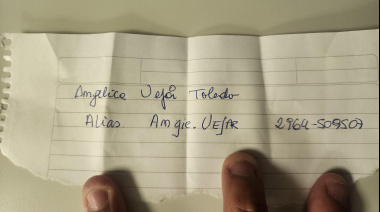 Angelica Vejar Toledo
Alias Angie.VEJAR 2964-509507